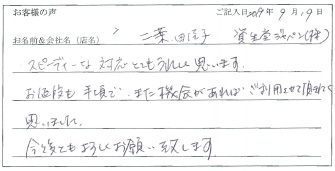 お客様の声 ご記入日2019年9月19日
お名前&会社名(店名) 二葉 佳子 資生堂ジャパン(株)
スピーディーな対応とてもうれしく思います。
お値段も手頃で、また機会があればご利用させて頂きたく
思いました。
今後ともよろしくお願い致します。